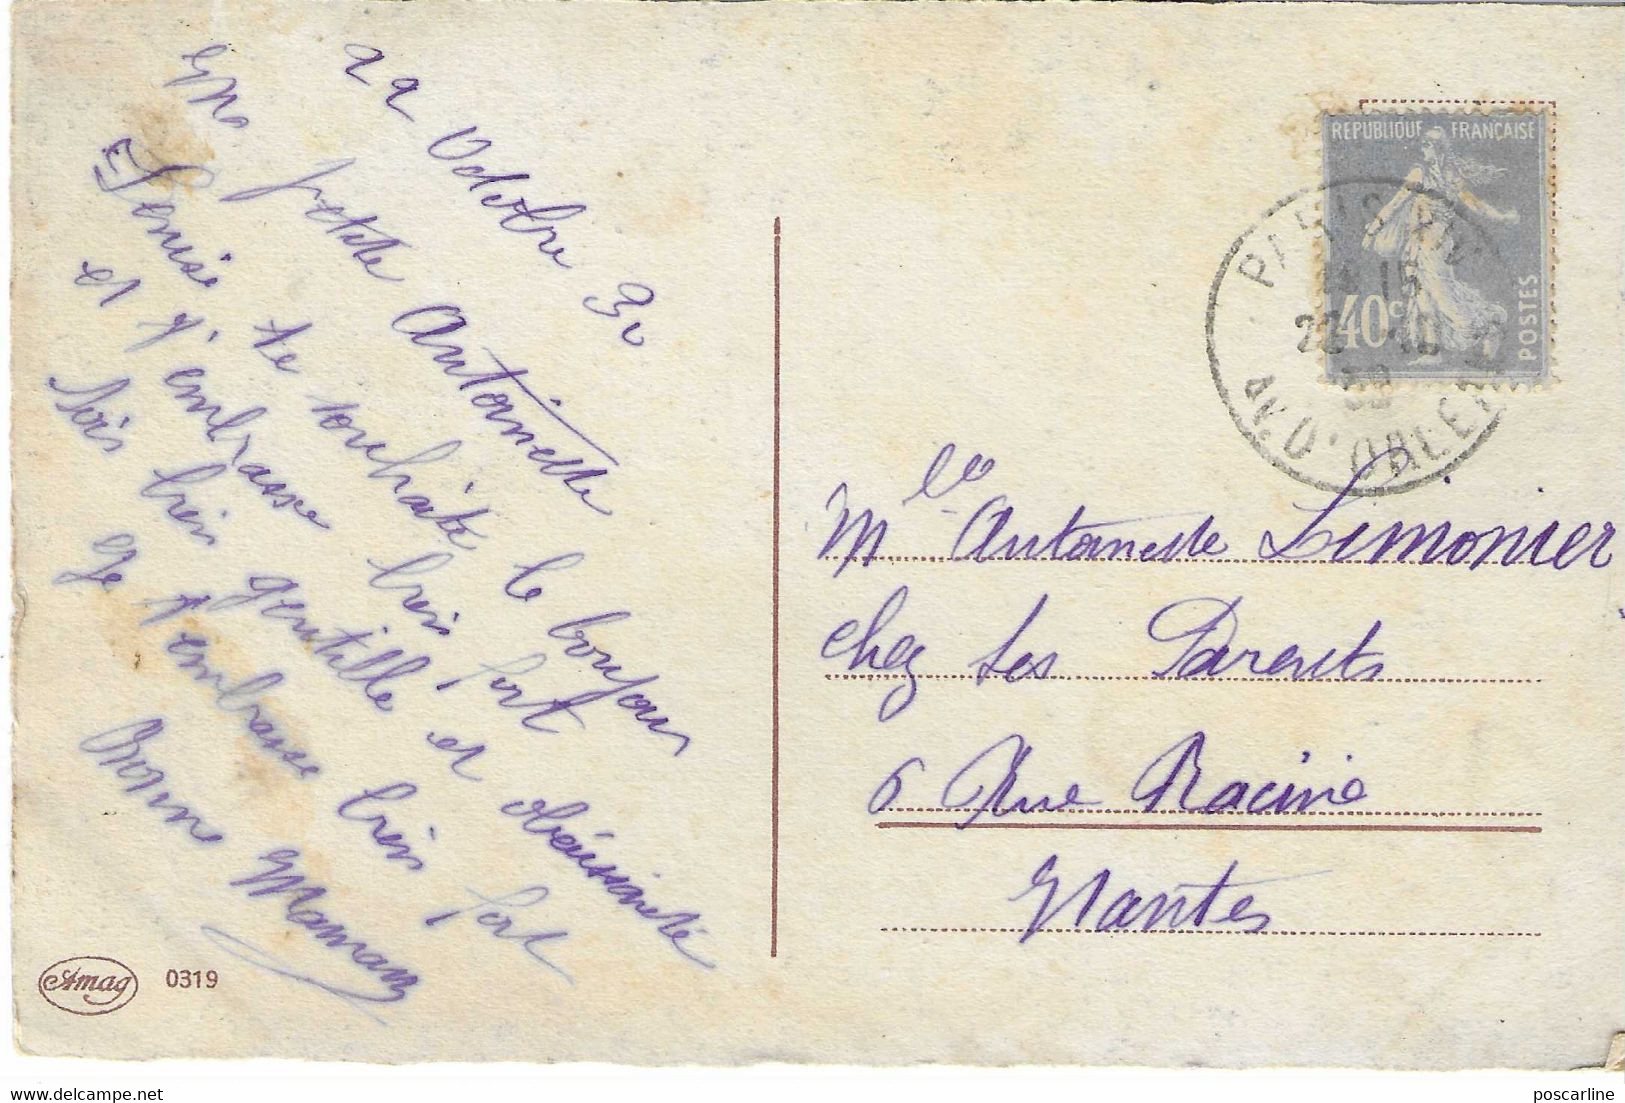 22 Octobre 30
Ma petite Antoinette
Louise te souhaite le bonjour
et t'embrasse bien fort
Sois bien gentille et obéissante
Je t'embrasse bien fort
Bonne Maman
Amag 0319
REPUBLIQUE FRANÇAISE
40c POSTES
PARIS XIV
22 10
30
AV. D'ORLEANS
Mlle Antoinette Limonier
chez ses Parents
6 Rue Racine
Nantes
poscarline